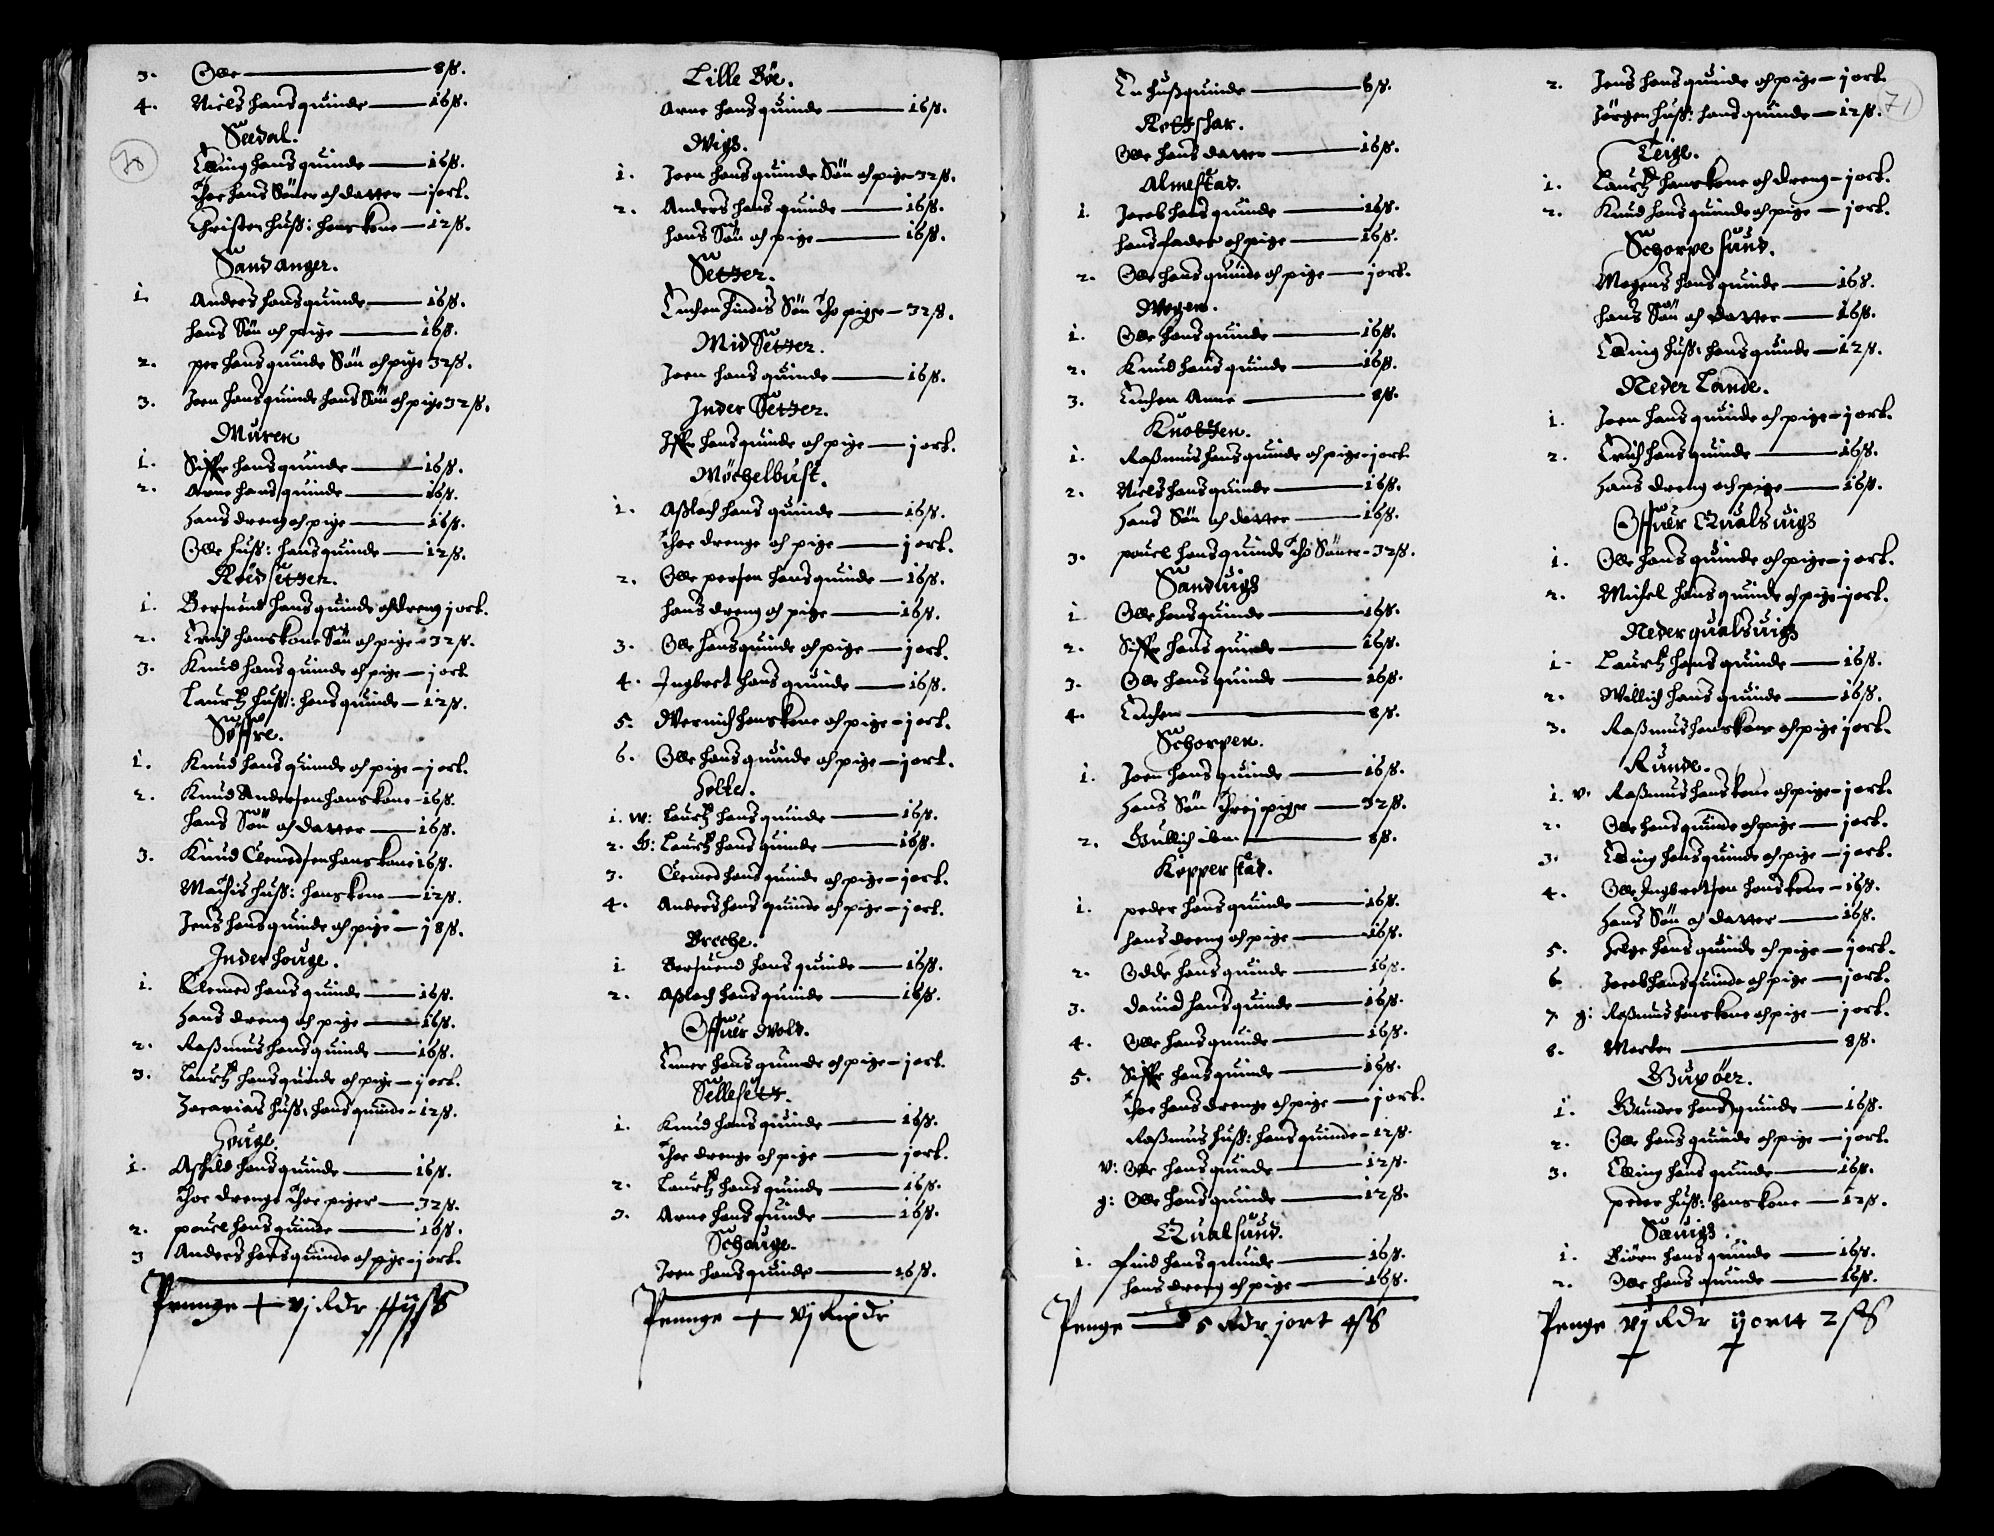 3. Olle — 8 ß.
4. Niels hans quinde — 16 ß.
Seedal.
Elling hans quinde — 16 ß.
Thoe hans Söner och datter — j ort.
Christen huß: hans kone — 12 ß.
Sandanger.
1. Anders hans quinde — 16 ß.
hans Sön och pige — 16 ß.
2. per hans quinde Sön och pige 32 ß.
3. Joen hans quinde hans Sön och pige 32 ß.
Muren
1. Siffe hans quinde — 16 ß.
2. Arne hans quinde — 16 ß.
Hans dreng och pige — 16 ß.
Olle huß: hans quinde — 12 ß.
Röedsetzer.
1. Bersuend hans quinde och dreng j ort.
2. Erich hans kone Sön och pige - 32 ß.
3. Knud hans quinde och pige — j ort
Lauritz huß: hans quinde — 12 ß.
Söffre.
1. Knud hans quinde och pige — j ort.
2. Knud Andersen hans kone - 16 ß.
hans Sön och datter — 16 ß.
3. Knud Clemedsen hans kone 16 ß.
Mathis huß: hans kone — 12 ß.
Jens hans quinde och pige — j 8 ß.
Inderhouge.
1. Clemed hans quinde — 16 ß.
Hans dreng och pige — 16 ß.
2. Raßmus hans quinde — 16 ß.
3. Lauritz hans quinde och pige — j ort.
Zacarias huß: hans quinde - 12 ß.
Houge.
1. Askild hans quinde — 16 ß.
Thoe drenge Thoe piger — 32 ß.
2. pouel hans quinde — 16 ß.
3 Anders hans quinde och pige - j ort.
Pennge + vj Rdr
70
Lille Böe.
Arne hans quinde — 16 ß.
Wigs.
1. Joen hans quinde Sön och pige 32 ß.
2. Anders hans quinde — 16 ß.
hans Sön och pige — 16 ß.
Setzer.
Enchen Findis Sön Tho pige — 32 ß.
Mid Setzer.
Joen hans quinde — 16 ß.
Inder Setzer.
Iffe hans quinde och pige — j ort.
Möchelbust.
1. Aßlach hans quinde — 16 ß.
Thoe drenge och pige — j ort.
2. Olle persen hans quinde — 16 ß.
hans dreng och pige — 16 ß.
3. Olle hans quinde och pige — j ort.
4. Ingbret hans quinde — 16 ß.
5. Wernich hans kone och pige — j ort.
6. Olle hans quinde och pige — j ort.
Holte.
1. w: Lauritz hans quinde — 16 ß.
2. G: Lauritz hans quinde — 16 ß.
3. Clemed hans quinde och pige — j ort.
4. Anders hans quinde och pige — j ort.
Breche.
1 Bersuend hans quinde — 16 ß.
2. Aßlach hans quinde — 16 ß.
Offuer Wold.
Einer hans quinde och pige — j ort.
Sellesetz.
1. Knud hans quinde — 16 ß.
Thoe drenge och pige — j ort.
2. Lauritz hans quinde — 16 ß.
3. Arne hans quinde — 16 ß.
Schouge.
Joen hans quinde — 16 ß.
Pennge + vj Rixdr
En hußquinde — 6 ß.
Rottschar.
Olle hans datter — 16 ß.
Almestad.
1. Jacob hans quinde — 16 ß.
hans fader och pige — 16 ß.
2. Olle hans quinde och pige — j ort.
Wegen.
1. Olle hans quinde — 16 ß.
2. Knud hans quinde — 16 ß.
3. Enchen Anne — 8 ß.
Knotzen.
1. Raßmus hans quinde och pige - j ort
2. Niels hans quinde — 16 ß.
Hans Sön och datter — 16 ß.
3. pouel hans quinde Tho Söner - 32 ß.
Sanduigs
1 Olle hans quinde — 16 ß.
2. Siffe hans quinde — 16 ß.
3. Olle hans quinde — 16 ß.
4. Enchen — 8 ß.
Schorpen.
1. Joen hans quinde — 16 ß.
Hans Sön Threj piger — 32 ß.
2. Gullich — 8 ß.
Kopperstad.
1. peder hans quinde — 16 ß.
hans dreng och pige — 16 ß.
2. Odde hans quinde — 16 ß.
3. dauid hans quinde — 16 ß.
4. Olle hans quinde — 16 ß.
5. Siffe hans quinde — 16 ß.
Thoe hans drenge och pige — j ort.
Raßmus huß: hans quinde - 12 ß.
v: Olle hans quinde — 12 ß.
g: Olle hans quinde — 12 ß.
Qualsund.
1. Find hans quinde — 16 ß.
hans dreng och pige — 16 ß.
Penge — 5 Rdr j ort 4 ß
2. Jens hans quinde och pige — j ort.
Jörgen huß: hans quinde — 12 ß.
71
Teige.
1. Lauritz hans kone och dreng - j ort.
2. Knud hans quinde och pige — j ort.
Schorpesund.
Mogens hans quinde — 16 ß.
hans Sön och datter — 16 ß.
Elling huß: hans quinde — 12 ß.
Neder Lande.
1. Joen hans quinde och pige - j ort.
2. Erich hans quinde — 16 ß.
Hans dreng och pige — 16 ß.
Offuer Qualsuigs
1. Olle hans quinde och pige - j ort.
2. Michel hans quinde och pige - j ort.
Neder qualsuigs
1 - Lauritz hans quinde — 16 ß.
2. Willich hans quinde — 16 ß.
3. Raßmus hans kone och pige j ort.
Runde.
1. v. Raßmus hans kone och pige - j ort.
2. Olle hans quinde och pige — j ort.
3. Elling hans quinde och pige — j ort.
4. Olle Ingbretsen hans kone - 16 ß.
Hans Sön och datter — 16 ß.
5. Helge hans quinde och pige — j ort.
6 Jacob hans quinde och pige — j ort.
7. g: Raßmus hans kone och pige — j ort.
8. Morten — 8 ß.
Guröer.
1. Gunder hans quinde — 16 ß.
2. Olle hans quinde och pige — j ort.
3. Elling hans quinde — 16 ß.
peder huß: hans kone — 12 ß.
Sæuigs.
1. Biörn hans quinde — 16 ß.
2. Olle hans quinde — 16 ß.
Penge vj Rdr ij ortt 2 ß